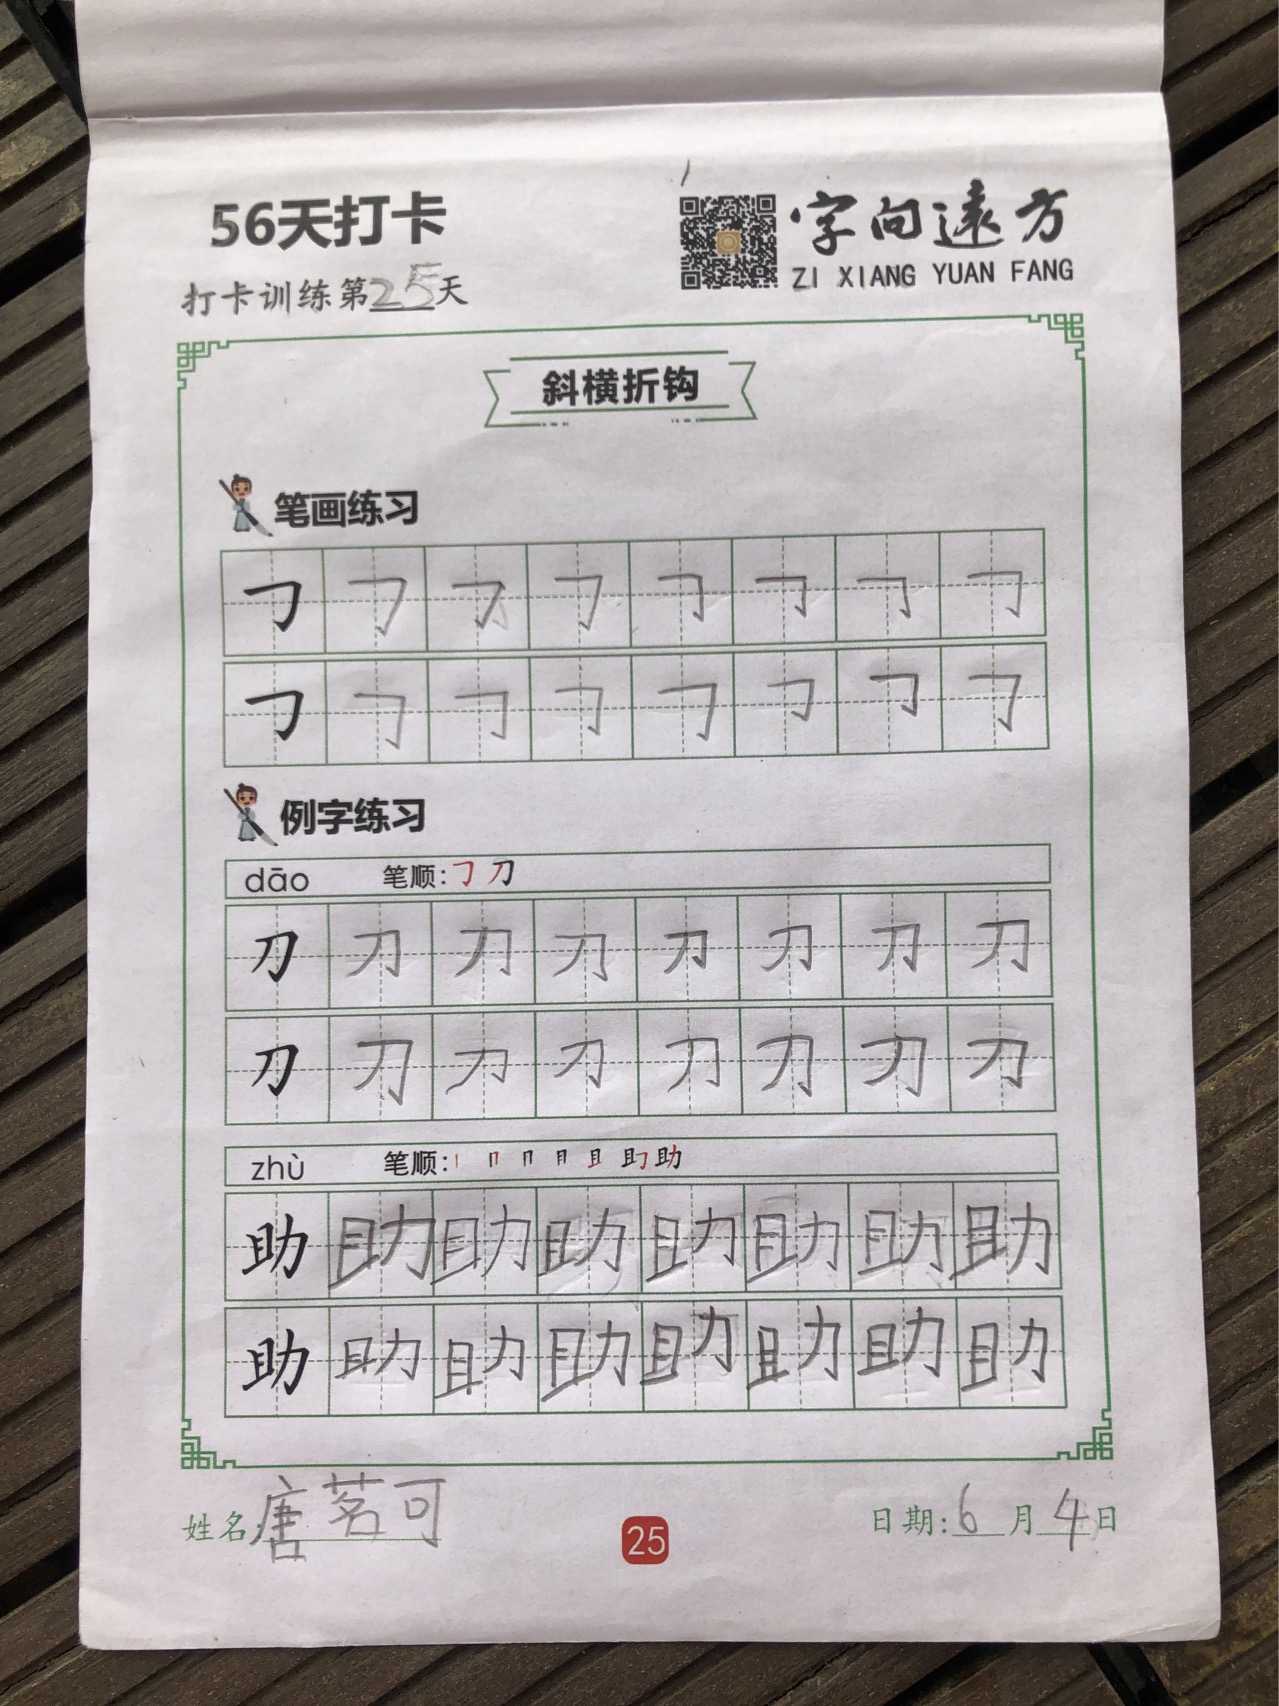 56天打卡
字向远方
ZI XIANG YUAN FANG
打卡训练第25天
斜横折钩
笔画练习
㇆ ㇆ ㇆ ㇆ ㇆ ㇆ ㇆ ㇆
㇆ ㇆ ㇆ ㇆ ㇆ ㇆ ㇆ ㇆
例字练习
dāo 笔顺:㇆ 刀
刀 刀 刀 刀 刀 刀 刀 刀
刀 刀 刀 刀 刀 刀 刀 刀
zhù 笔顺: 助
助 助 助 助 助 助 助 助
助 助 助 助 助 助 助 助
姓名:唐茗可
25
日期:6月4日